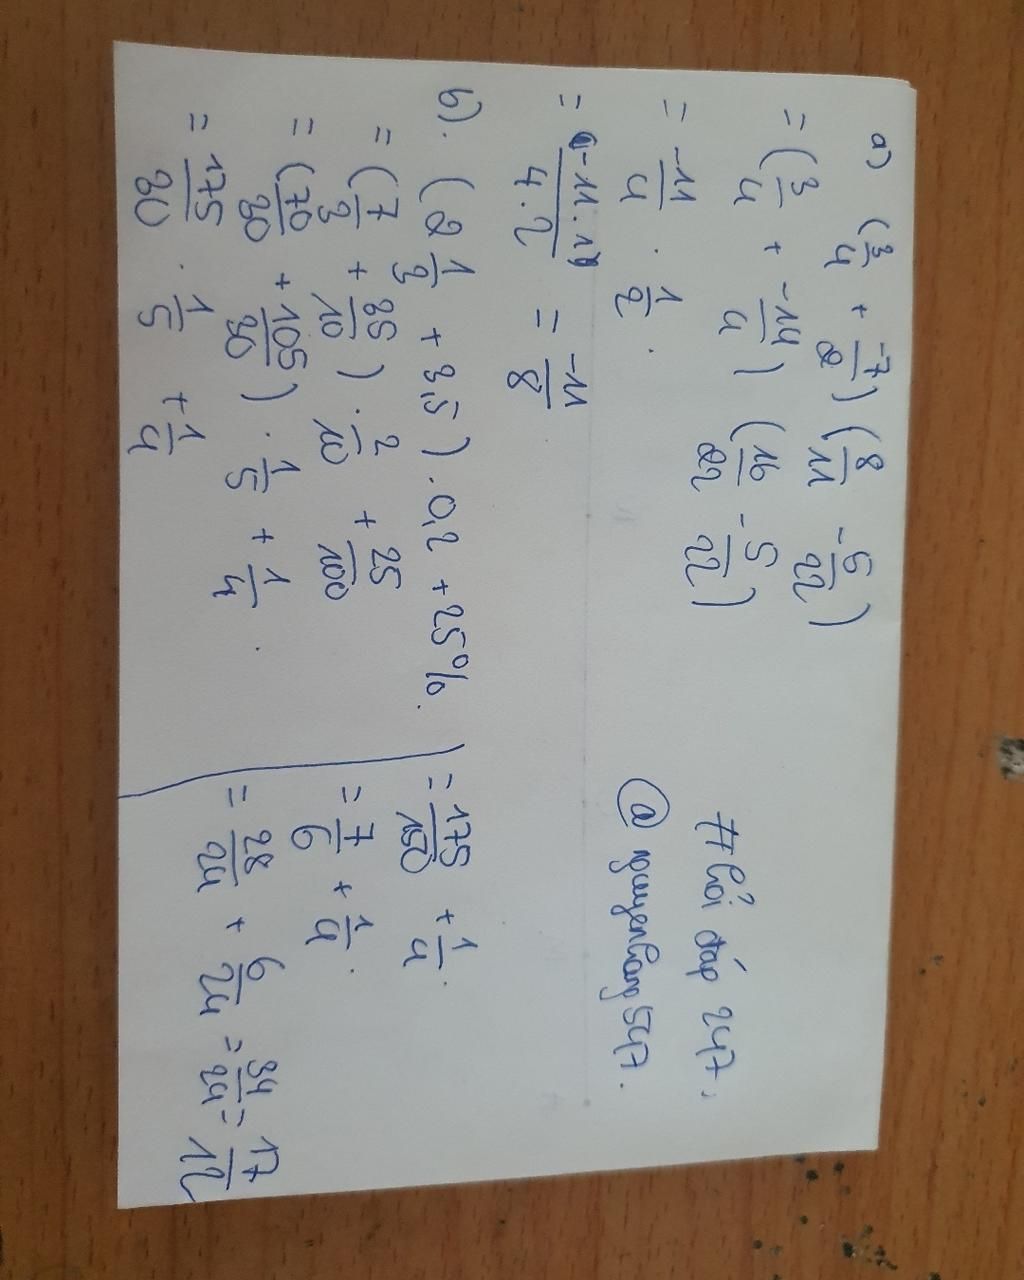 a) (3/4 + -7/2) (8/11 - 5/22)
= (3/4 + -14/4) (16/22 - 5/22)
= -11/4 . 1/2 .
= -11.1/4.2 = -11/8
b). (2 1/3 + 3,5) . 0,2 + 25%.
= (7/3 + 35/10) . 2/10 + 25/100
= (70/30 + 105/30) . 1/5 + 1/4 .
= 175/30 . 1/5 + 1/4
= 175/150 + 1/4 .
= 7/6 + 1/4 .
= 28/24 + 6/24 = 34/24 = 17/12
#hỏi đáp 247.
@nguyenhang547.